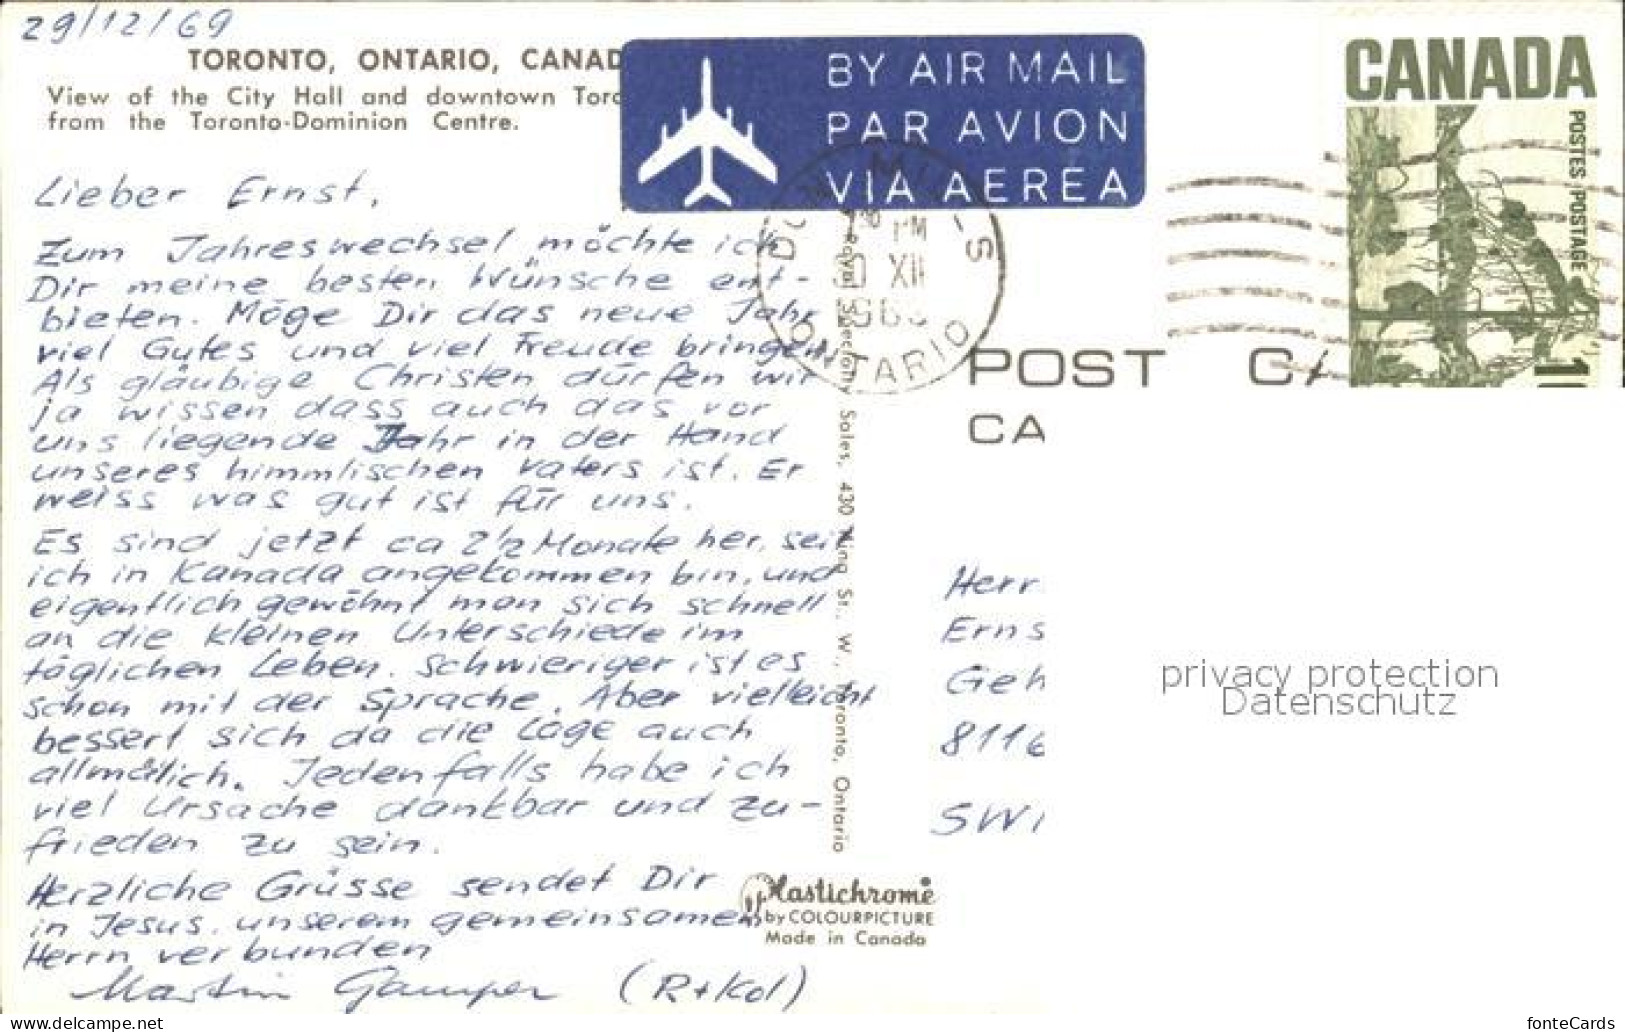 29/12/69
TORONTO, ONTARIO, CANAD
View of the City Hall and downtown Toro
from the Toronto-Dominion Centre.
BY AIR MAIL
PAR AVION
VIA AEREA
CANADA
POSTES POSTAGE
PM
XII
ONTARIO
POST CA
CA
Lieber Ernst,
Zum Jahreswechsel möchte ich
Dir meine besten Wünsche ent-
bieten. Möge Dir das neue Jahr
viel Gutes und viel Freude bringen.
Als gläubige Christen dürfen wir
ja wissen dass auch das vor
uns liegende Jahr in der Hand
unseres himmlischen Vaters ist. Er
weiss was gut ist für uns.
Es sind jetzt ca 2 1/2 Monate her, seit
ich in Kanada angekommen bin, und
eigentlich gewöhnt man sich schnell
an die kleinen Unterschiede im
täglichen Leben. Schwieriger ist es
schon mit der Sprache. Aber vielleicht
bessert sich da die Lage auch
allmälich. Jedenfalls habe ich
viel Ursache dankbar und zu-
frieden zu sein.
Herzliche Grüsse sendet Dir
in Jesus, unserem gemeinsamen
Herrn verbunden
Martin Gamper (R+Kol)
Royal Specialty Sales, 430 King St., W., Toronto, Ontario
Plastichrome
by COLOURPICTURE
Made in Canada
Herr
Erns
Geh
8116
SWI
privacy protection
Datenschutz
https://www.delcampe.net
fonteCards